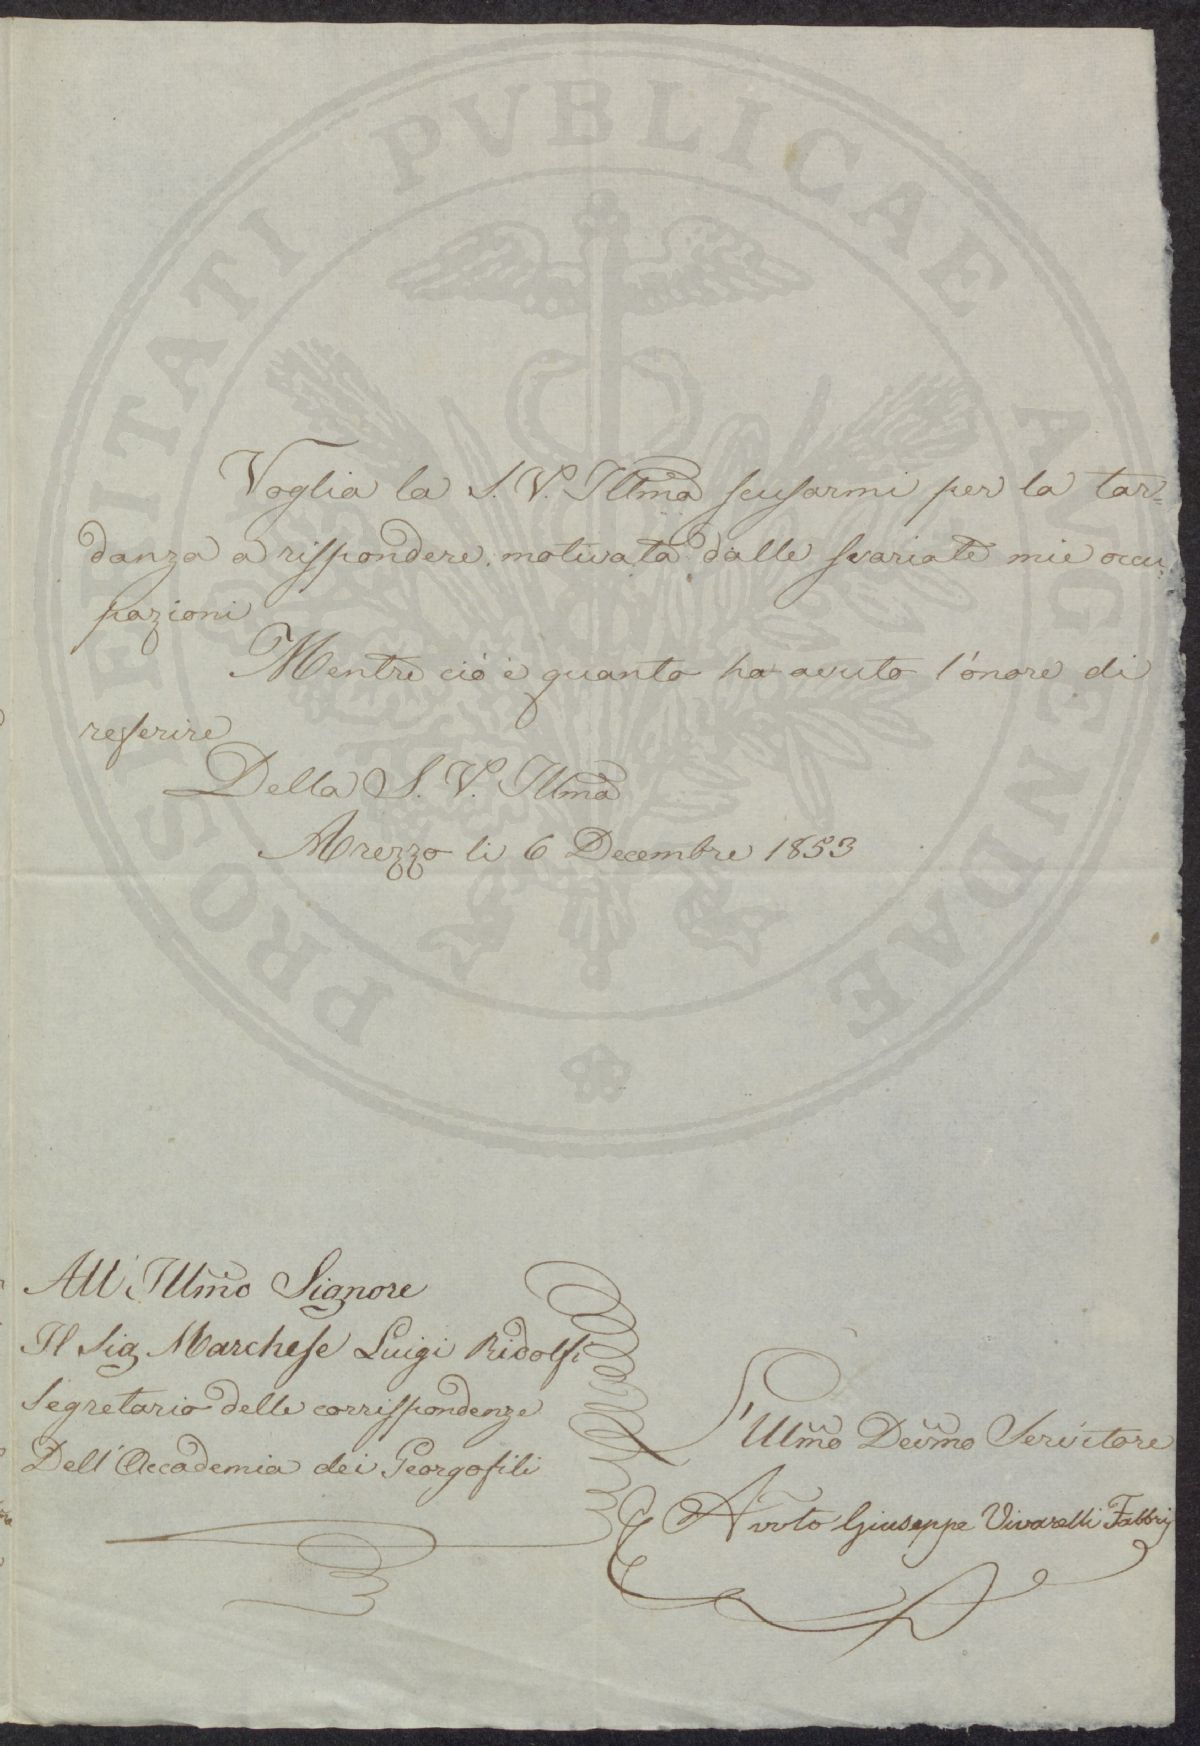 PROSPERITATI PVBLICAE AVGENDAE
Voglia la S. V. Illma scusarmi per la tar=
danza a rispondere motivata dalle svariate mie occu=
pazioni
Mentre ciò è quanto ha avuto l'onore di
referire
Della S. V. Illma
Arezzo li 6 Decembre 1853
All' Illmo Signore
Il Sig Marchese Luigi Ridolfi
Segretario delle corrispondenze
Dell' Accademia dei Georgofili
Devmo Servitore
Avvto Giuseppe Vivarelli Fabbrj